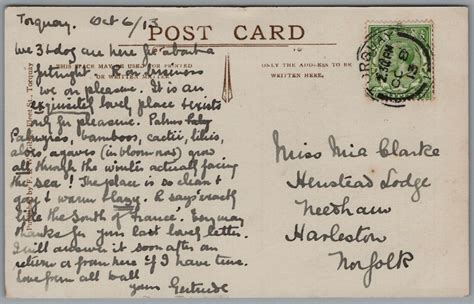 Torquay. Oct 6/13
POST CARD
THIS SPACE MAY BE USED
FOR CORRESPONDENCE
THE ADDRESS ONLY TO BE
WRITTEN HERE.
We 3 & dog are here for about a
fortnight. R on business
we on pleasure. It is an
exquisitely lovely place & exists
only for pleasure. Palms
bamboos, cactii, lilies,
aloes, agaves (in bloom now) grow
all through the winter actually facing
the sea! The place is so clean &
gay & warm. R says exactly
like the South of France. Very many
thanks for your last lovely letter.
I will answer it soon after our
return or from here if I have time.
Love from all to all
yours Gertrude
Miss Mia Clarke
Henstead Lodge
Needham
Harleston
Norfolk
TORQUAY